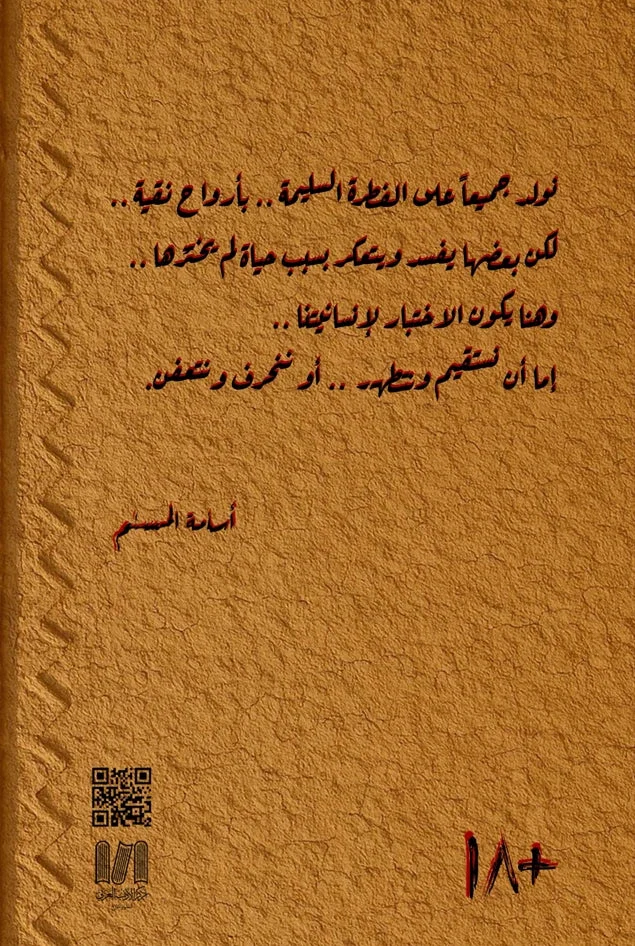 نولد جميعاً على الفطرة السليمة .. بأرواح نقية ..
لكن بعضها يفسد ويتعكر بسبب حياة لم يخترها ..
وهنا يكون الاختبار لإنسانيتنا ..
إما أن نستقيم ونتطهر .. أو ننحرف ونتعفن.
أسامة المسلم
مركز الأدب العربي
+١٨